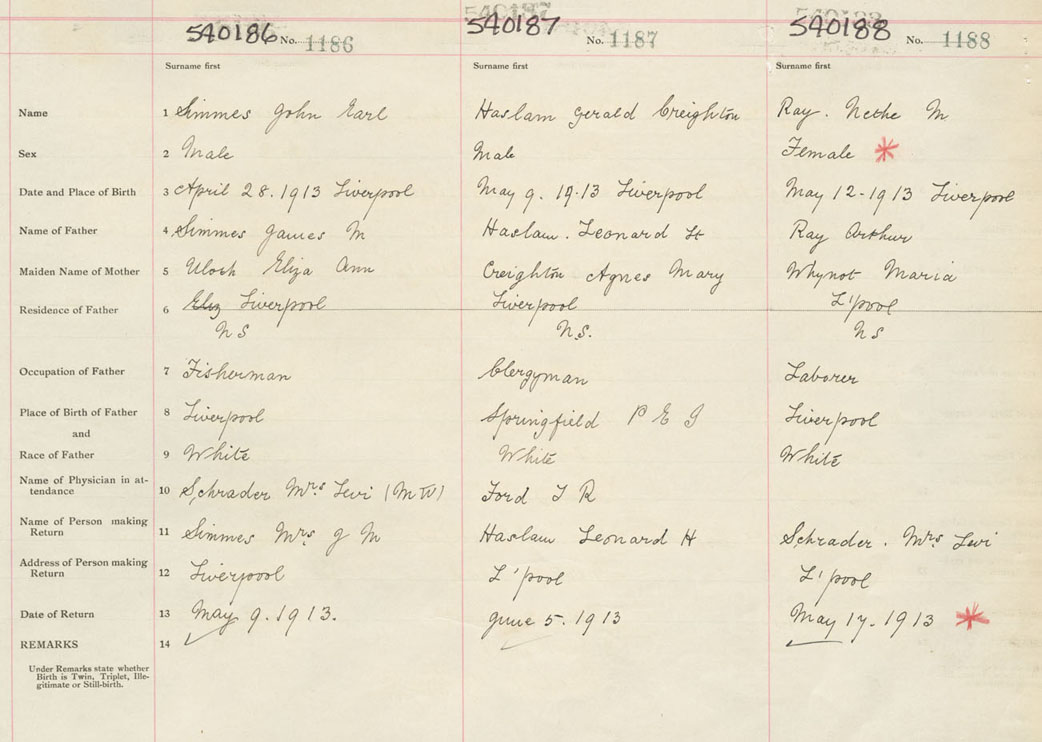 540186 No. 1186 540187 No. 1187 540188 No. 1188
Surname first Surname first Surname first
Name 1 Simmes John Earl Haslam Gerald Creighton Ray. Nethe M
Sex 2 Male Male Female *
Date and Place of Birth 3 April 28. 1913 Liverpool May 9. 19.13 Liverpool May 12-1913 Liverpool
Name of Father 4 Simmes James M Haslam. Leonard H Ray Arthur
Maiden Name of Mother 5 Eliza Ann Creighton Agnes Mary Whynot Maria
Residence of Father 6 Eliz Liverpool Liverpool L'pool
NS N.S. NS
Occupation of Father 7 Fisherman Clergyman Laborer
Place of Birth of Father 8 Liverpool Springfield P E I Liverpool
and
Race of Father 9 White White White
Name of Physician in at-
tendance 10 Schrader Mrs Levi (MW) Ford T R
Name of Person making
Return 11 Simmes Mrs J M Haslam Leonard H Schrader. Mrs Levi
Address of Person making
Return 12 Liverpool L'pool L'pool
Date of Return 13 May 9. 1913. June 5. 1913 May 17. 1913 *
REMARKS 14
Under Remarks state whether
Birth is Twin, Triplet, Ille-
gitimate or Still-birth.